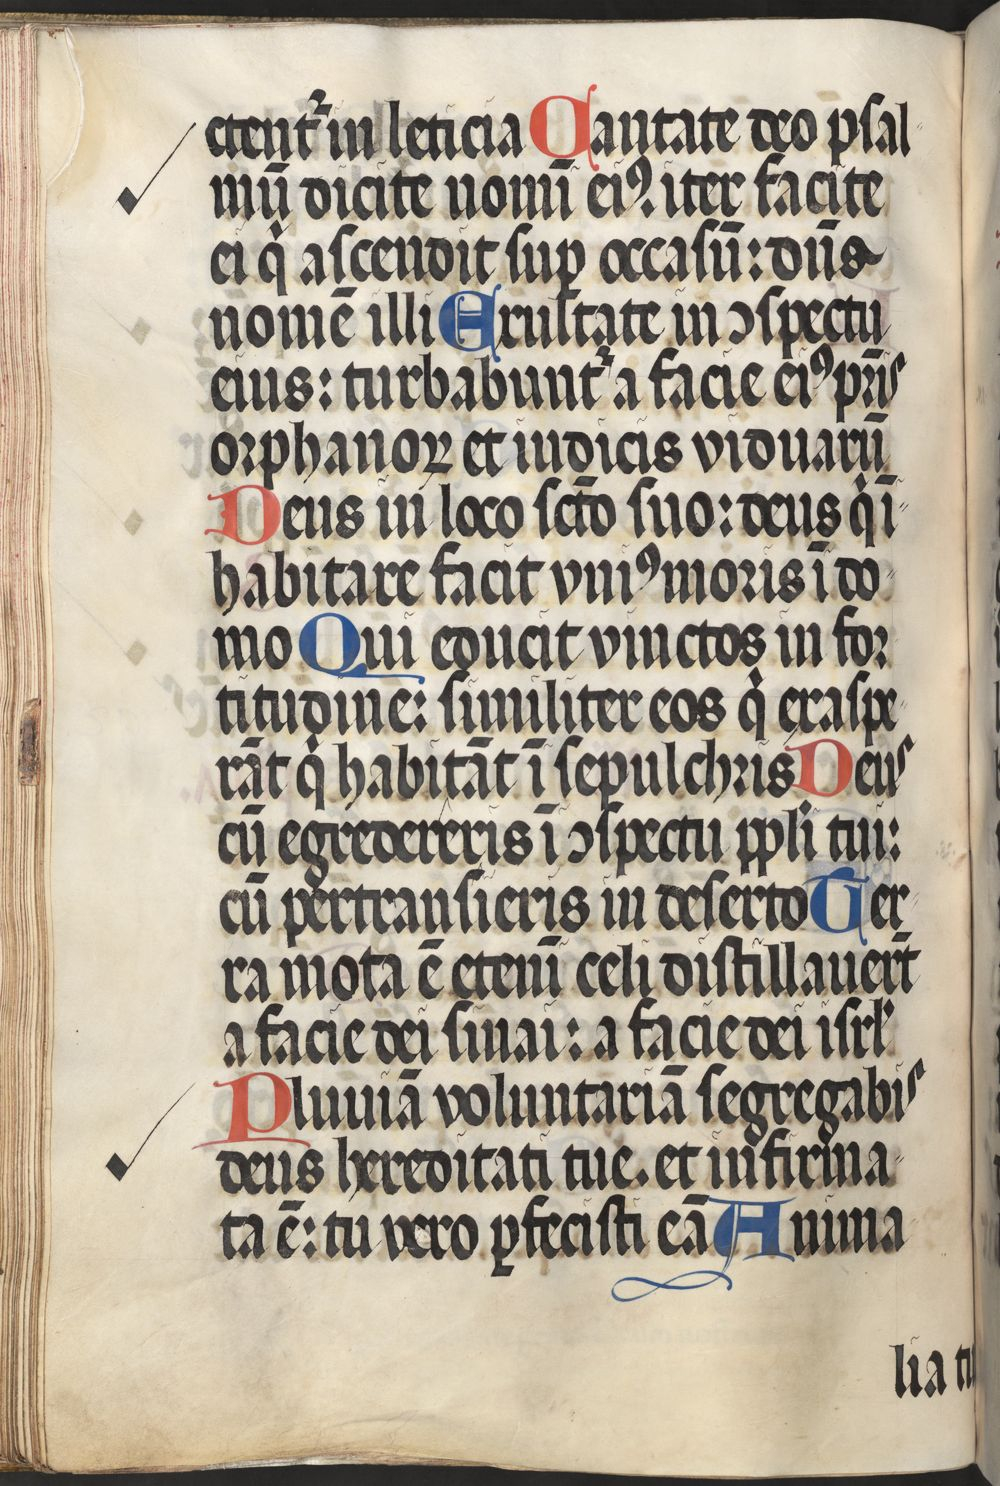 ctent᷑ in leticia Cantate deo psal
mū dicite nomī eiꝰ. iter facite
ei q̇ ascendit sup occasū: dn̄s
nomē illi Exultate in ↄspectu
eius: turbabunt᷑ a facie eiꝰ pr̄is
orphanoꝝ et iudicis viduarū
Deus in loco sct̄o suo: deus q̇ ī
habitare facit vniꝰ moris ī do
mo Qui educit vinctos in for
titudine: similiter eos q̇ exaspe
rāt q̇ habitāt ī sepulchris Deus
cū egredereris ī ↄspectu ppl̓i tui:
cū pertransieris in deserto Ter
ra mota ē etenī celi distillauer̄t
a facie dei sinai: a facie dei isrl̓
Pluuiā voluntariā segregabis
deus hereditati tue. et infirma
ta ē: tu vero ꝑfecisti eā Anima
lia tu